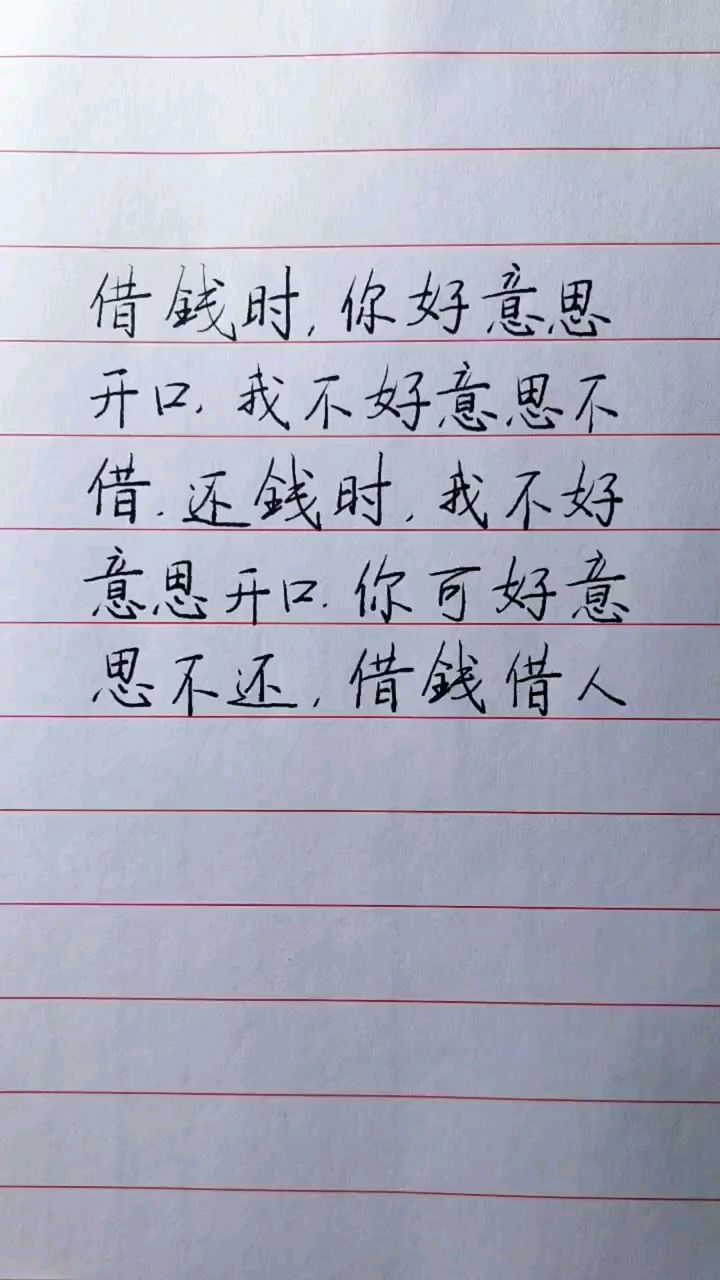 借銭时,你好意思
开口.我不好意思不
借.还銭时,我不好
意思开口.你可好意
思不还,借銭借人